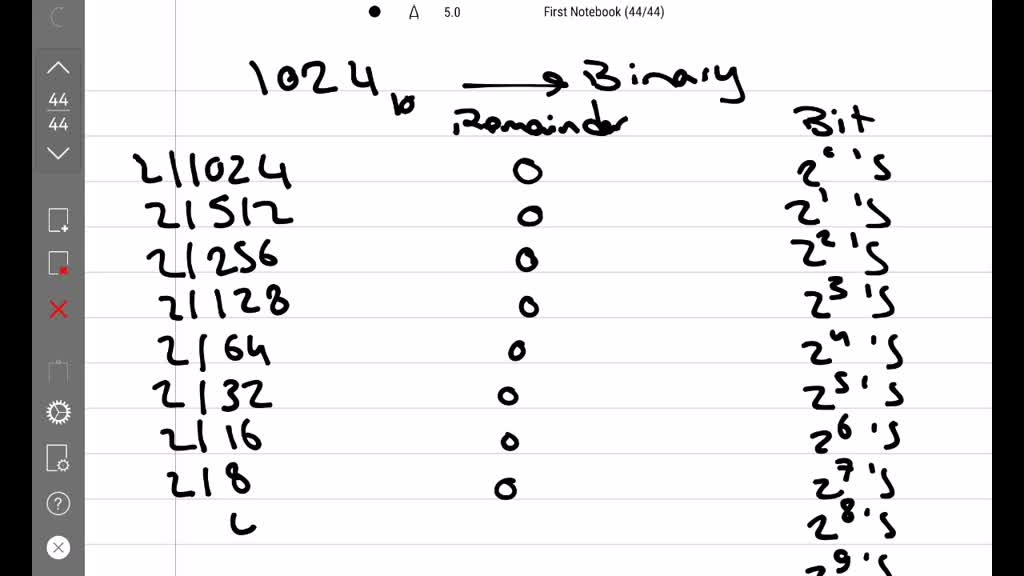 A 5.0 First Notebook (44/44)
44
44
1024₁₀ → Binary
Remainder Bit
2|1024 0 2⁰'s
2|512 0 2¹'s
2|256 0 2²'s
2|128 0 2³'s
2|64 0 2⁴'s
2|32 0 2⁵'s
2|16 0 2⁶'s
2|8 0 2⁷'s
2⁸'s
2⁹'s